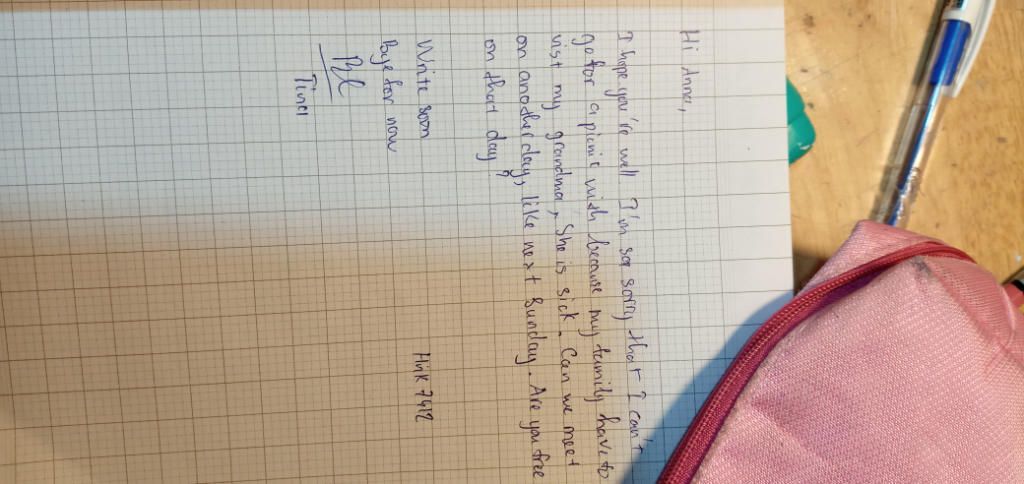 Hi Anna,
I hope you're well. I'm so sorry that I can't
go for a picnic with because my family have to
vist my grandma, She is sick. Can we meet
on another day, like next Sunday. Are you free
on that day?
Write soon
Bye for now
Tina